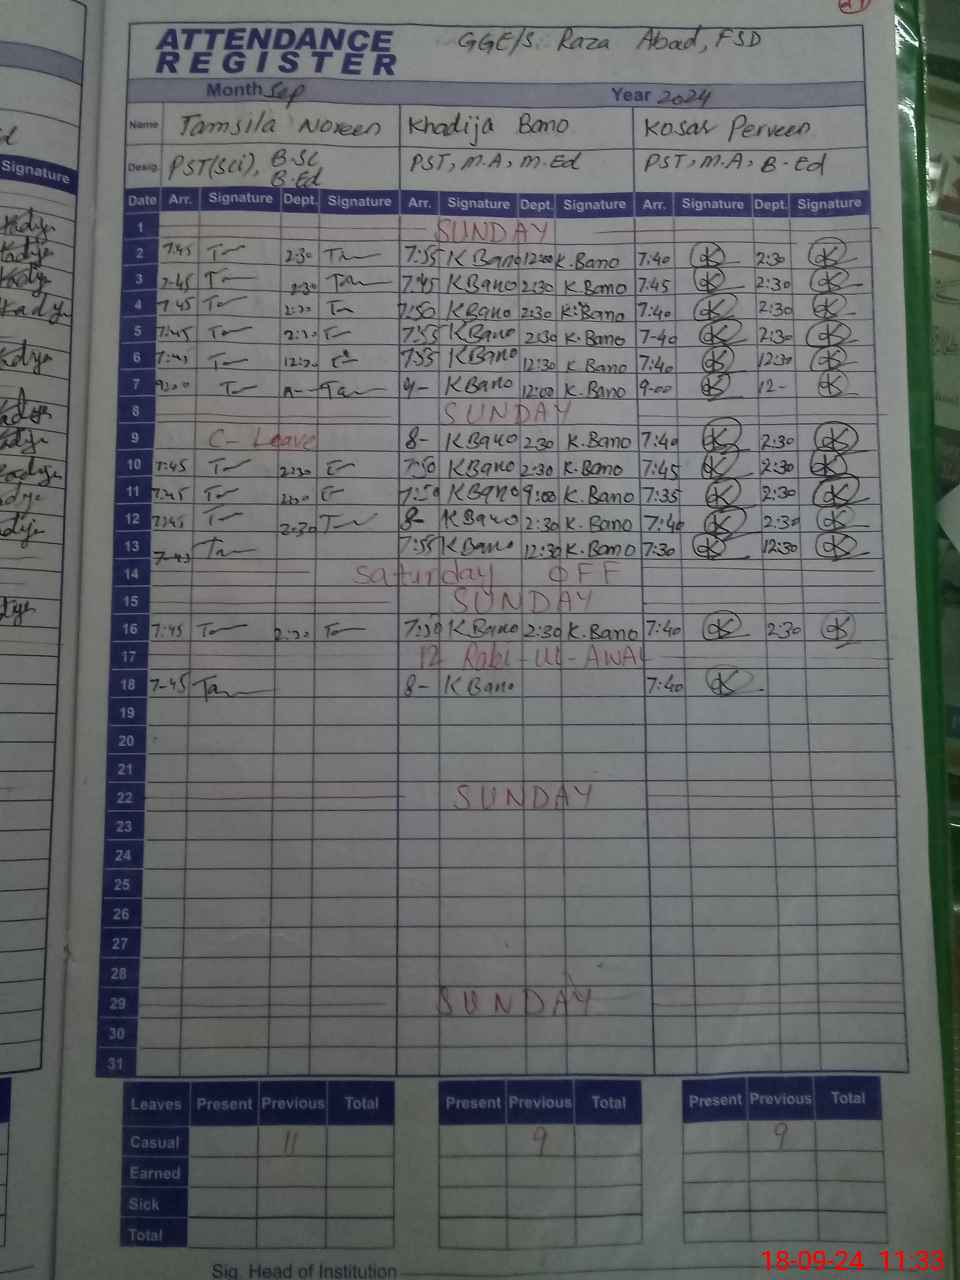 ATTENDANCE REGISTER GGE/S Raza Abad, FSD
Month Sep Year 2024
Name Tamsila Noreen Khadija Bano Kosar Perveen
Desig. PST(Sci), B.Sc B.Ed PST, M.A, M.Ed PST, M.A, B.Ed
Signature
Date Arr. Signature Dept. Signature Arr. Signature Dept. Signature Arr. Signature Dept. Signature
1 SUNDAY
2 7:45 2:30 7:55 K Bano 12:00 K.Bano 7:40 2:30
3 7:45 2:30 7:45 K Bano 2:30 K.Bano 7:45 2:30
4 7:45 2:30 7:50 K Bano 2:30 K.Bano 7:40 2:30
5 7:45 2:30 7:55 K Bano 2:30 K.Bano 7-40 2:30
6 7:45 12:30 7:55 K Bano 12:30 K.Bano 7:40 12:30
7 9:00 K Bano 12:00 K.Bano 9-00 12-
8 SUNDAY
9 C-Leave 8- K Bano 2:30 K.Bano 7:40 2:30
10 7:45 2:30 7:50 K Bano 2:30 K.Bano 7:45 2:30
11 7:45 2:30 7:50 K Bano 9:00 K.Bano 7:35 2:30
12 7:45 2:30 8- K Bano 2:30 K.Bano 7:40 2:30
13 7-45 7:55 K Bano 12:30 K.Bano 7:30 12:30
14 Saturday OFF
15 SUNDAY
16 7:45 2:30 7:50 K Bano 2:30 K.Bano 7:40 2:30
17 12 Rabi-Ul-AWAL
18 7-45 8- K Bano 7:40
19
20
21
22 SUNDAY
23
24
25
26
27
28
29 SUNDAY
30
31
Leaves Present Previous Total Present Previous Total Present Previous Total
Casual 11 9 9
Earned
Sick
Total
Sig. Head of Institution
18-09-24 11:33